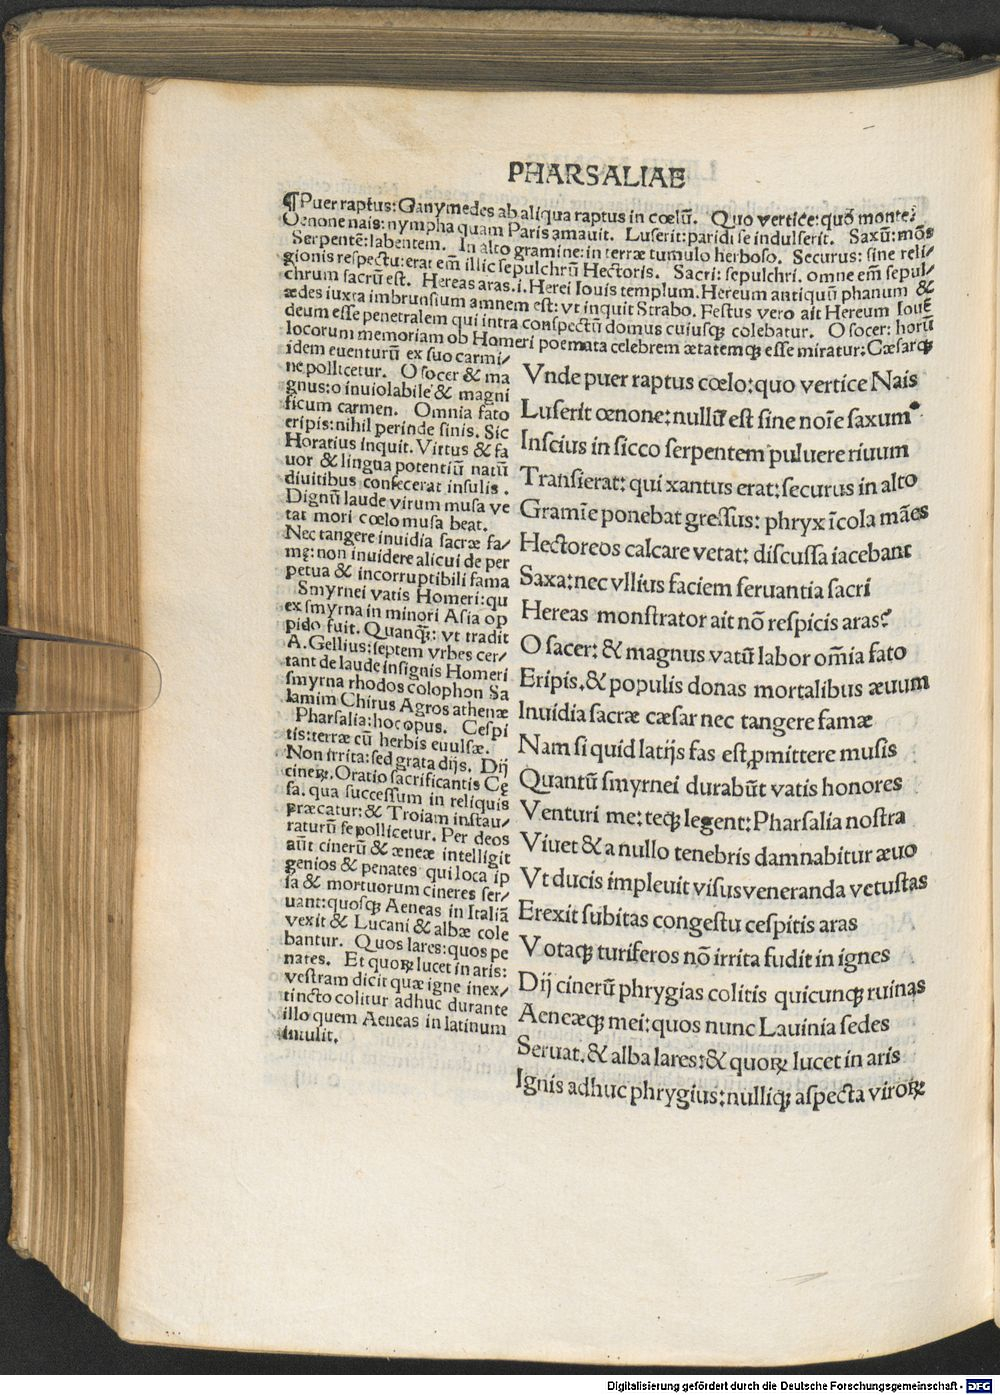 PHARSALIAE
¶Puer raptus: Ganymedes ab aliqua raptus in cœlū. Quo vertice: quo monte:
Oenone nais: nympha quam Paris amauit. Luserit: paridi se indulserit. Saxū: mōs
Serpentē: labentem. In alto gramine: in terræ tumulo herboso. Securus: sine reli/
gionis respectu: erat em̄ illic sepulchrū Hectoris. Sacri: sepulchri. omne em̄ sepul/
chrum sacrū est. Hereas aras .i. Herei Iouis templum. Hereum antiquū phanum &
ædes iuxta imbrunsium amnem est: vt inquit Strabo. Festus vero ait Hereum Iouē
deum esse penetralem qui intra conspectū domus cuiusqꝫ colebatur. O socer: horū
locorum memoriam ob Homeri poemata celebrem ætatemqꝫ esse miratur: Cæsarqꝫ
idem euenturū ex suo carmi/
ne pollicetur. O socer & ma
gnus: o inuiolabile & magni
ficum carmen. Omnia fato
eripis: nihil perinde sinis. Sic
Horatius inquit. Virtus & fa
uor & lingua potentiū natū
diuitibus consecerat insulis.
Dignū laude virum musa ve
tat mori cœlo musa beat.
Nec tangere inuidia sacræ fa/
mę: non inuidere alicui de per
petua & incorruptibili fama
Smyrnei vatis Homeri: qu
ex smyrna in minori Asia op
pido fuit. Quanqꝫ: vt tradit
A. Gellius: septem vrbes cer/
tant de laude insignis Homeri
smyrna rhodos colophon Sa
lamim Chirus Agros athenæ
Pharsalia: hoc opus. Cespi
tis: terræ cū herbis euulsæ.
Non irrita: sed grata dijs. Dij
cineꝝ. Oratio sacrificantis Cę
sa. qua successum in reliquis
præcatur: & Troiam instau/
raturū se pollicetur. Per deos
aūt cinerū & æneæ intelligit
genios & penates qui loca ip
sa & mortuorum cineres ser/
uant: quosqꝫ Aeneas in Italiā
vexit & Lucani & albæ cole
bantur. Quos lares: quos pe
nates. Et quoꝝ lucet in aris:
vestram dicit quæ igne inex/
tincto colitur adhuc durante
illo quem Aeneas in latinum
intulit.
Vnde puer raptus cœlo: quo vertice Nais
Luserit œnone: nullū est sine noīe saxum
Inscius in sicco serpentem puluere riuum
Transierat: qui xantus erat: securus in alto
Gramīe ponebat gressus: phryx īcola māes
Hectoreos calcare vetat: discussa iacebant
Saxa: nec vllius faciem seruantia sacri
Hereas monstrator ait nō respicis aras?
O sacer: & magnus vatū labor om̄ia fato
Eripis. & populis donas mortalibus æuum
Inuidia sacræ cæsar nec tangere famæ
Nam si quid latijs fas est ꝓmittere musis
Quantū smyrnei durabūt vatis honores
Venturi me: teqꝫ legent: Pharsalia nostra
Viuet & a nullo tenebris damnabitur æuo
Vt ducis impleuit visus veneranda vetustas
Erexit subitas congestu cespitis aras
Votaqꝫ turiferos nō irrita fudit in ignes
Dij cinerū phrygias colitis quicunqꝫ ruinas
Aeneæqꝫ mei: quos nunc Lauinia sedes
Seruat. & alba lares: & quoꝝ lucet in aris
Ignis adhuc phrygius: nulliqꝫ aspecta viroꝝ
Digitalisierung gefördert durch die Deutsche Forschungsgemeinschaft - DFG